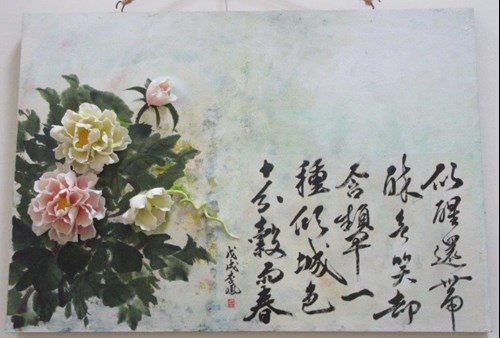 似醒還帶
醉多笑却
含顰一
種傾城色
十分穀雨春
戊戌